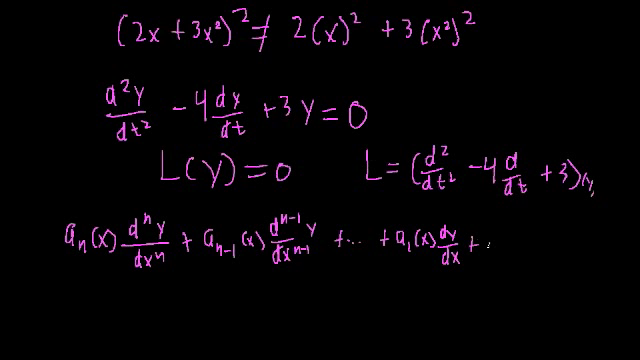 (2x + 3x²)² ≠ 2(x)² + 3(x²)²
d²y/dt² - 4 dy/dt + 3y = 0
L(y) = 0 L = (d²/dt² - 4 d/dt + 3)(y)
aₙ(x) dⁿy/dxⁿ + aₙ₋₁(x) dⁿ⁻¹y/dxⁿ⁻¹ + ... + a₁(x) dy/dx +